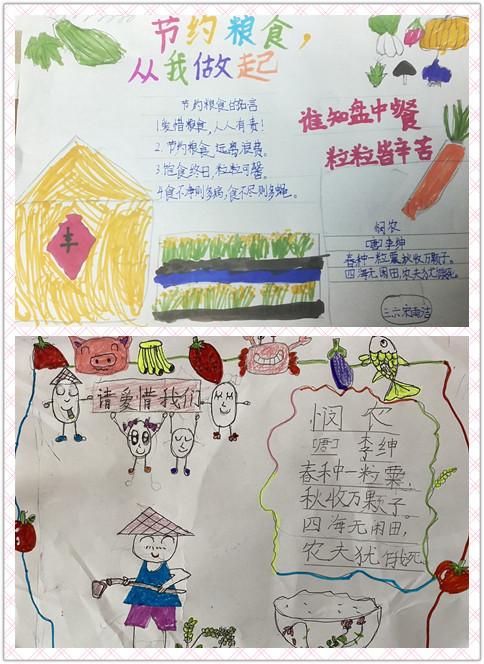 节约粮食，
从我做起
节约粮食的名言
1.爱惜粮食,人人有责!
2.节约粮食,远离浪费。
3.饱食终日,粒粒可磬。
4.食不净则多病,食不尽则多蝇。
谁知盘中餐
粒粒皆辛苦
悯农
[唐]李绅
春种一粒粟,秋收万颗子。
四海无闲田,农夫犹饿死。
丰
请爱惜我们
悯农
[唐]李绅
春种一粒粟,
秋收万颗子。
四海无闲田,
农夫犹饿死